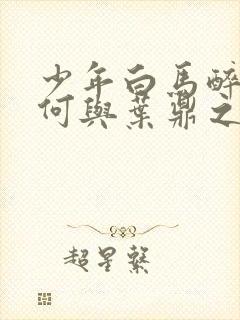 少年白馬醉
何與葉鼎之
超星繫